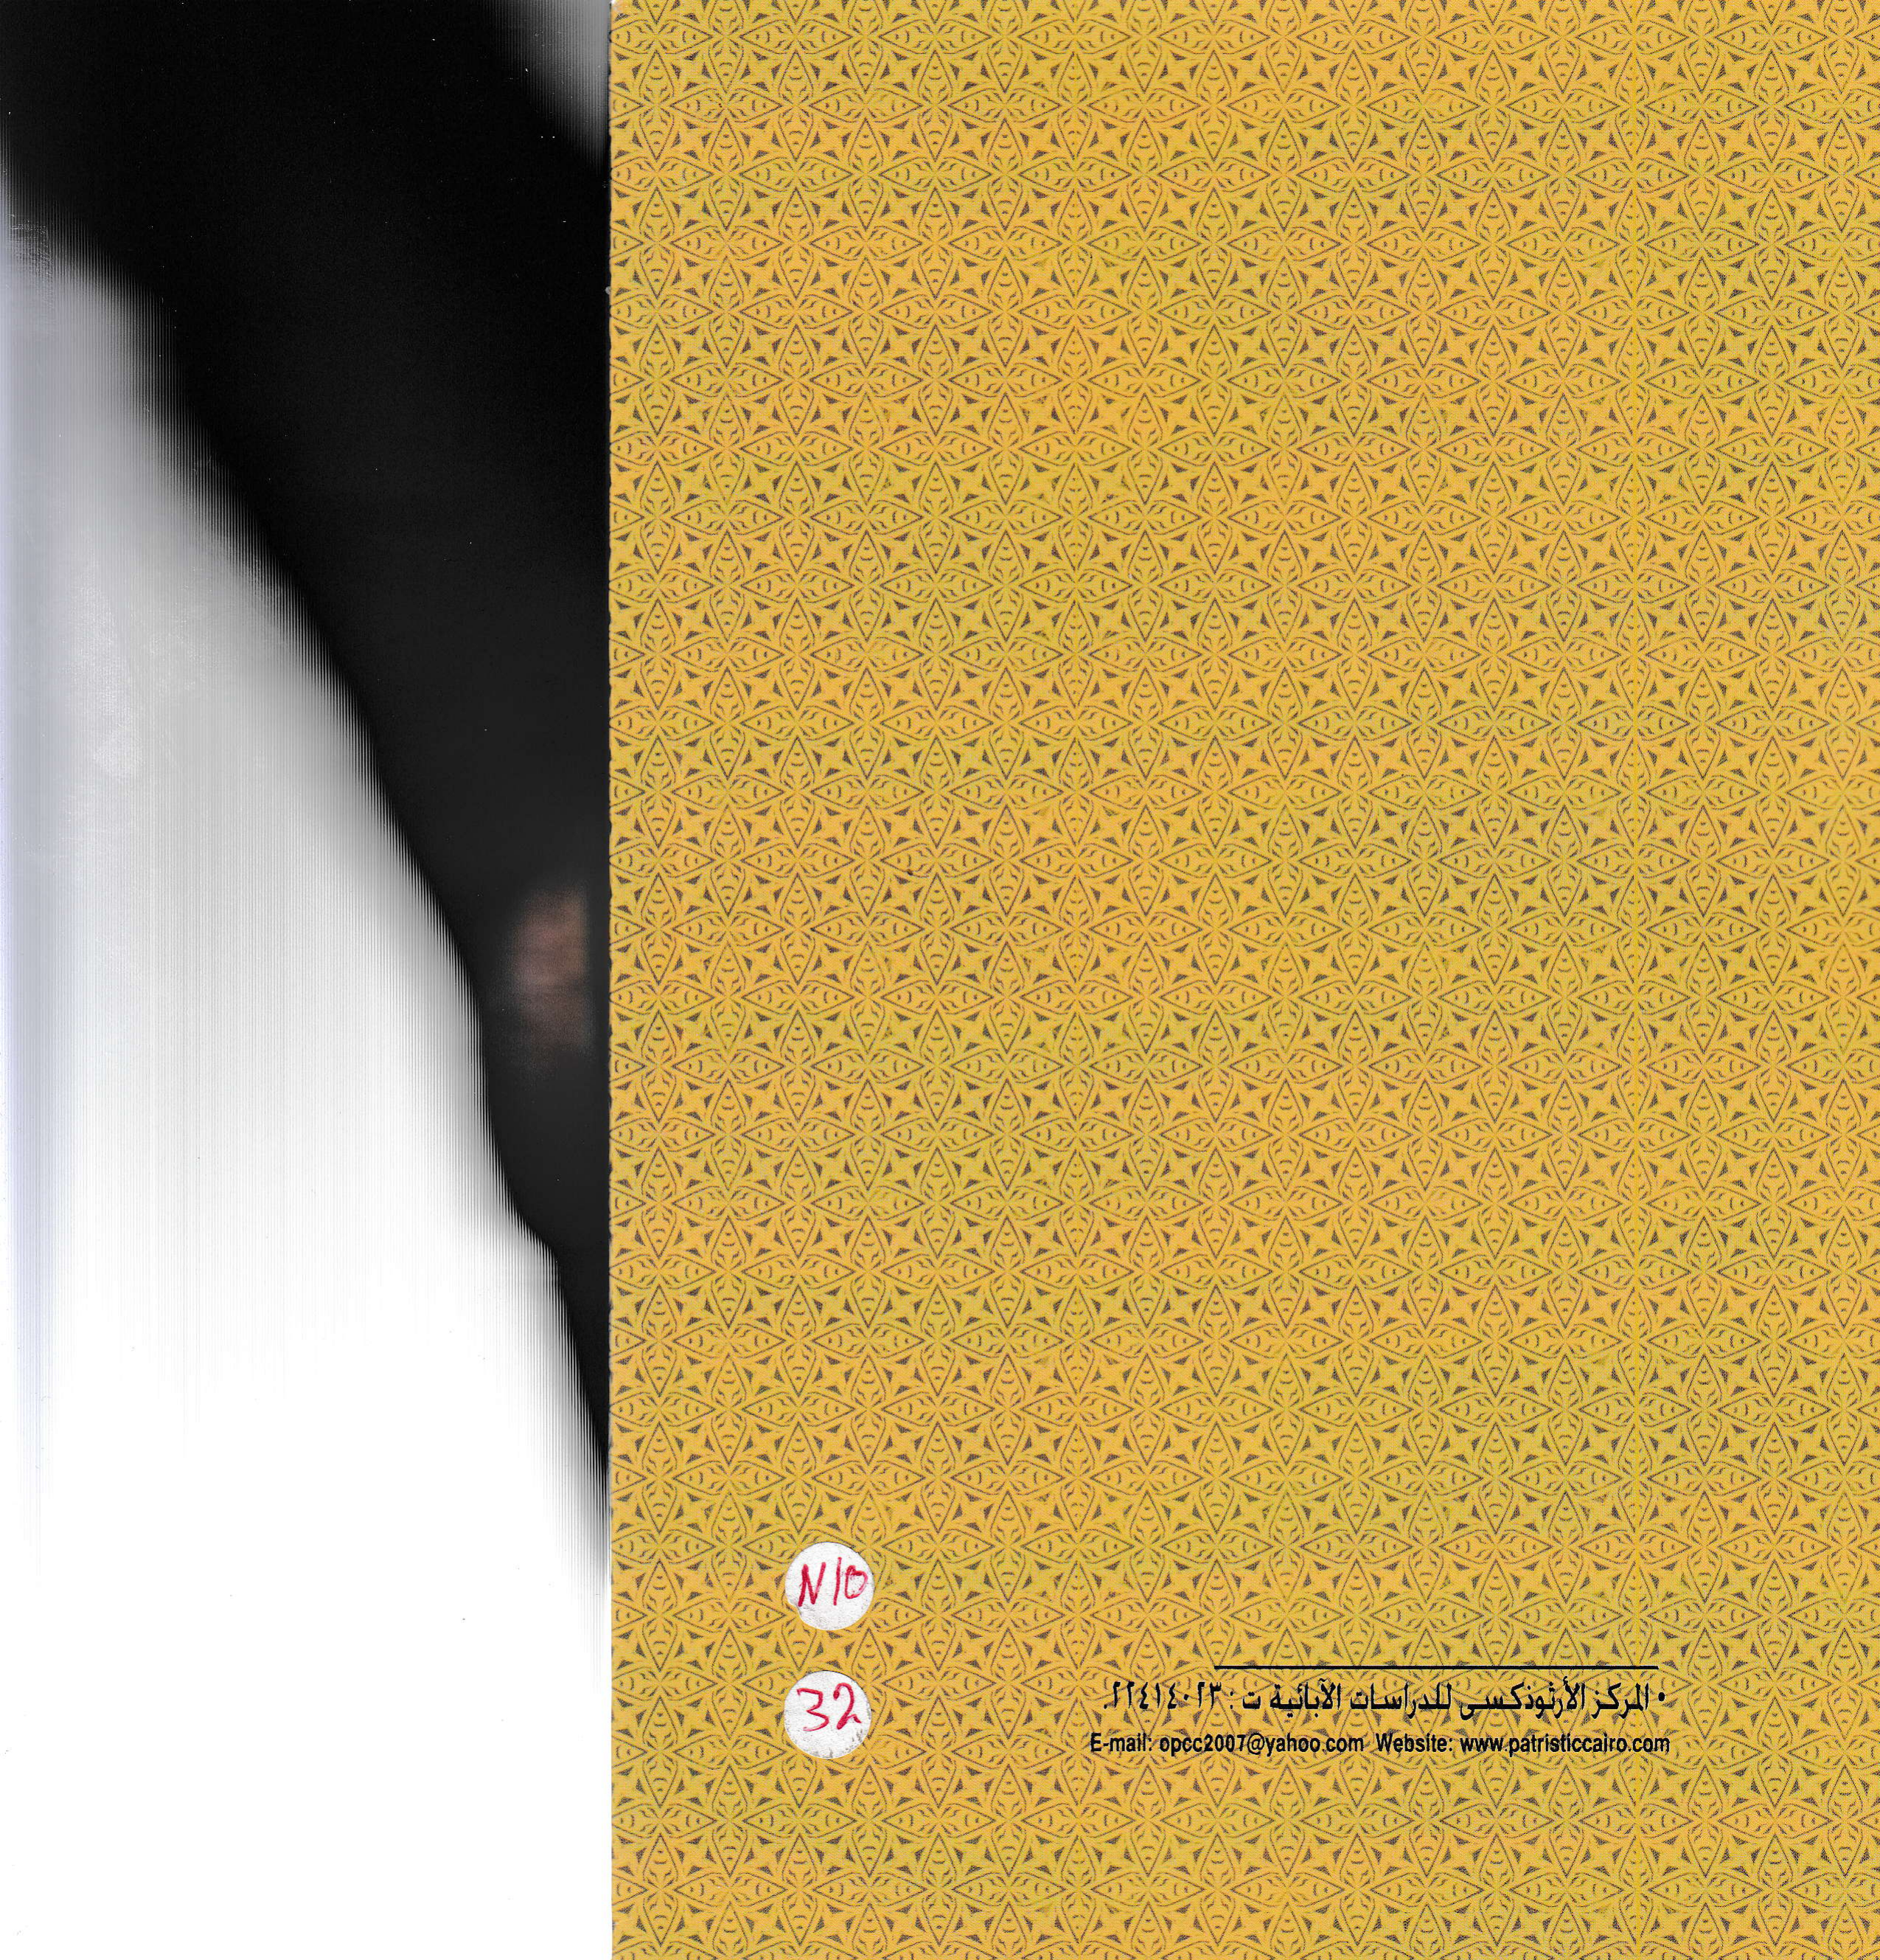 N10
32
• المركز الأرثوذكسى للدراسات الآبائية ت : ٢٢٤١٤٠٢٣.
E-mail: opcc2007@yahoo.com Website: www.patristiccairo.com